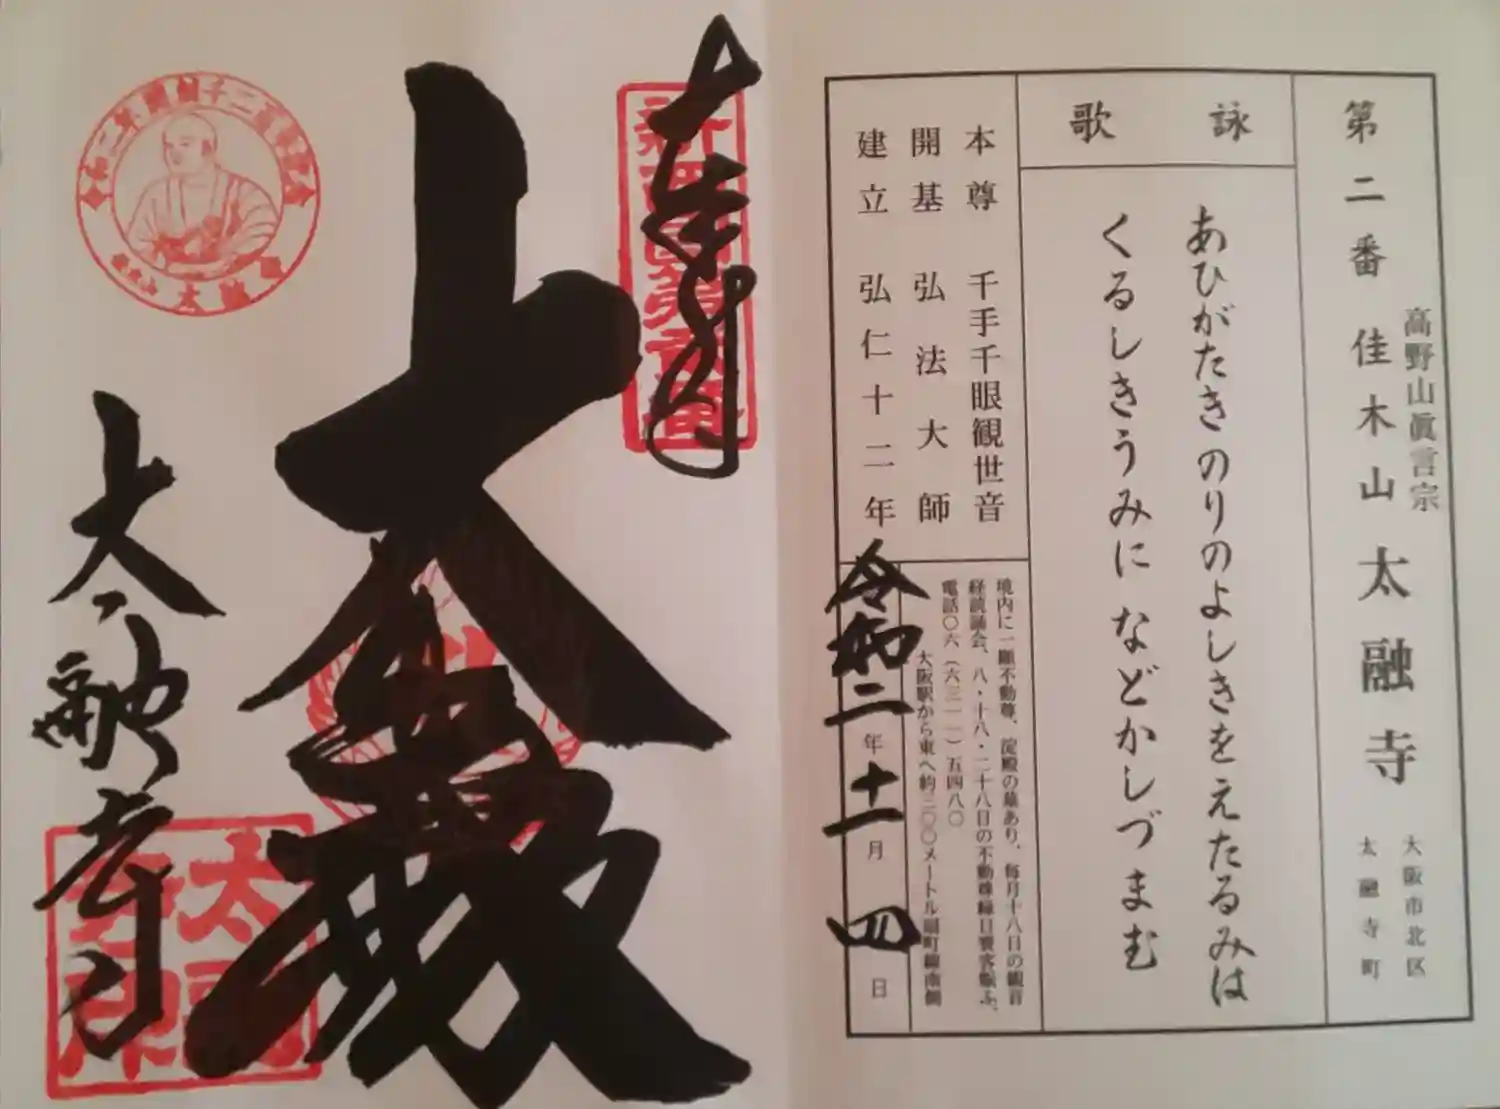 第二番 佳木山 太融寺
高野山眞言宗
大阪市北区
太融寺町
詠歌
あひがたき のりのよしきを えたるみは
くるしきうみに などかしづまむ
本尊 千手千眼観世音
開基 弘法大師
建立 弘仁十二年
境内に一願不動尊、淀殿の墓あり、毎月十八日の観音
経読誦会、八・十八・二十八日の不動尊縁日賽客賑ふ、
電話〇六(六三一一)五四八〇
大阪駅から東へ約三〇〇メートル扇町線南側
令和二年十一月四日
奉拝
新西国第
大
太融寺
太融